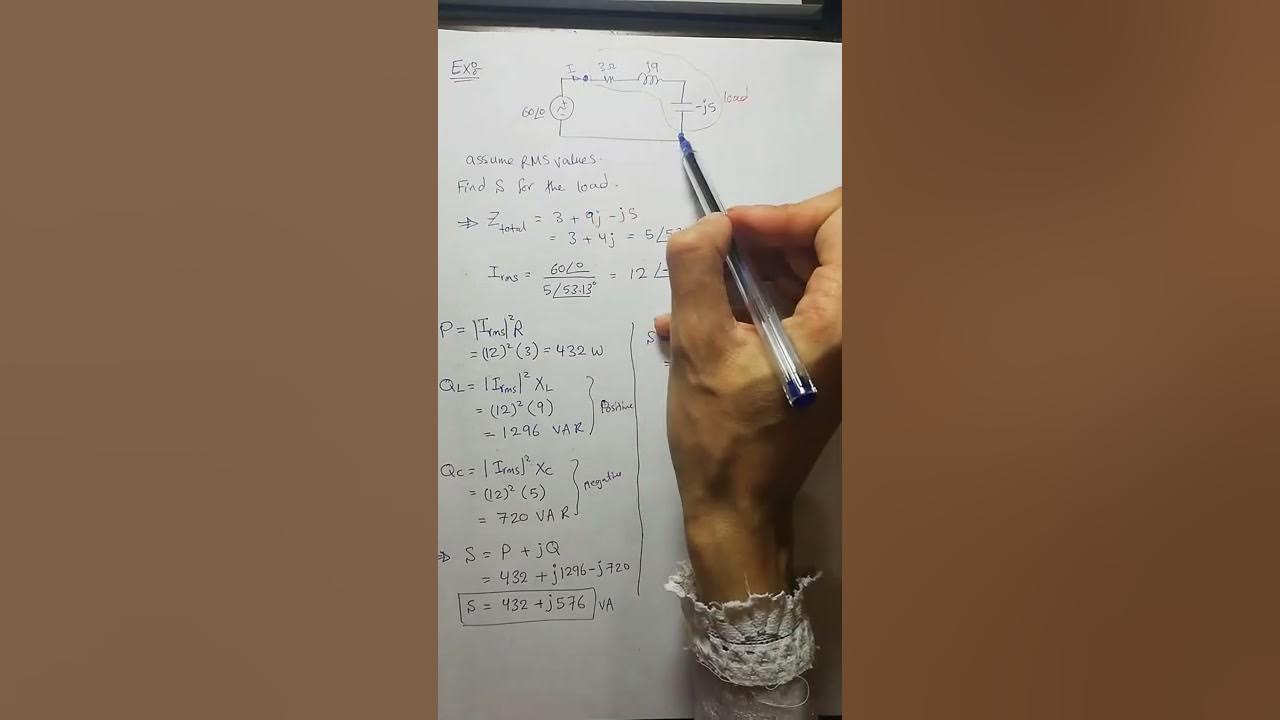 Ex:
I 3Ω j9
60∠0
-j5 load
assume RMS values.
Find S for the load.
⇒ Z total = 3 + 9j - j5
= 3 + 4j = 5∠53
I rms = 60∠0 / 5∠53.13° = 12∠-
P = |I rms|² R
= (12)² (3) = 432 W
QL = |I rms|² XL
= (12)² (9)
= 1296 VAR
Positive
QC = |I rms|² XC
= (12)² (5)
= 720 VAR
negative
⇒ S = P + jQ
= 432 + j1296 - j720
S = 432 + j576 VA
S
=